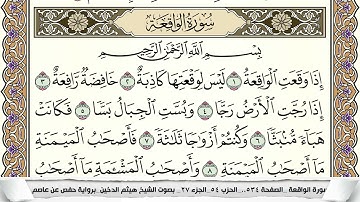 سُورَةُ الوَاقِعَةِ
بِسْمِ ٱللَّهِ ٱلرَّحْمَٰنِ ٱلرَّحِيمِ
إِذَا وَقَعَتِ ٱلْوَاقِعَةُ ١ لَيْسَ لِوَقْعَتِهَا كَاذِبَةٌ ٢ خَافِضَةٌ رَّافِعَةٌ ٣
إِذَا رُجَّتِ ٱلْأَرْضُ رَجًّا ٤ وَبُسَّتِ ٱلْجِبَالُ بَسًّا ٥ فَكَانَتْ
هَبَآءً مُّنۢبَثًّا ٦ وَكُنتُمْ أَزْوَٰجًا ثَلَٰثَةً ٧ فَأَصْحَٰبُ ٱلْمَيْمَنَةِ
مَآ أَصْحَٰبُ ٱلْمَيْمَنَةِ ٨ وَأَصْحَٰبُ ٱلْمَشْـَٔمَةِ مَآ أَصْحَٰبُ
سورة الواقعة _الصفحة ٥٣٤_ الحزب ٥٤_الجزء ٢٧_ بصوت الشيخ هيثم الدخين _برواية حفص عن عاصم